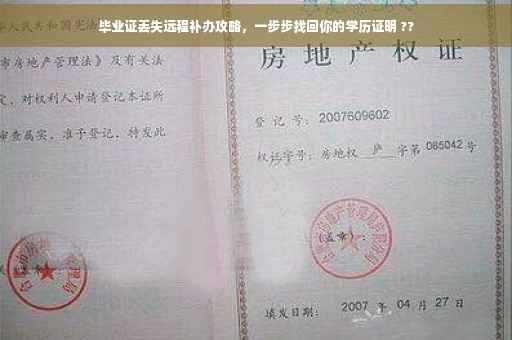 毕业证丢失远程补办攻略，一步步找回你的学历证明 ??
人民共和国宪法
市房地产管理法》及有关法
定，对权利人申请登记本证所
审查属实，准予登记，特发此
房地产权证
登记号：2007609602
权证字号：房地权 庐 字第 085042 号
(盖章)：
填发日期： 2007 年 04 月 27 日